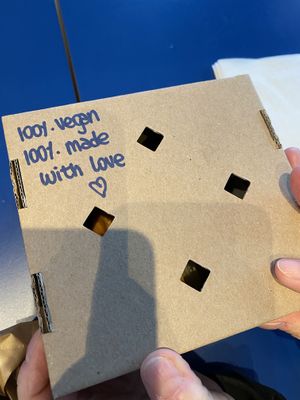 100%. vegan
100%. made
with love
♡